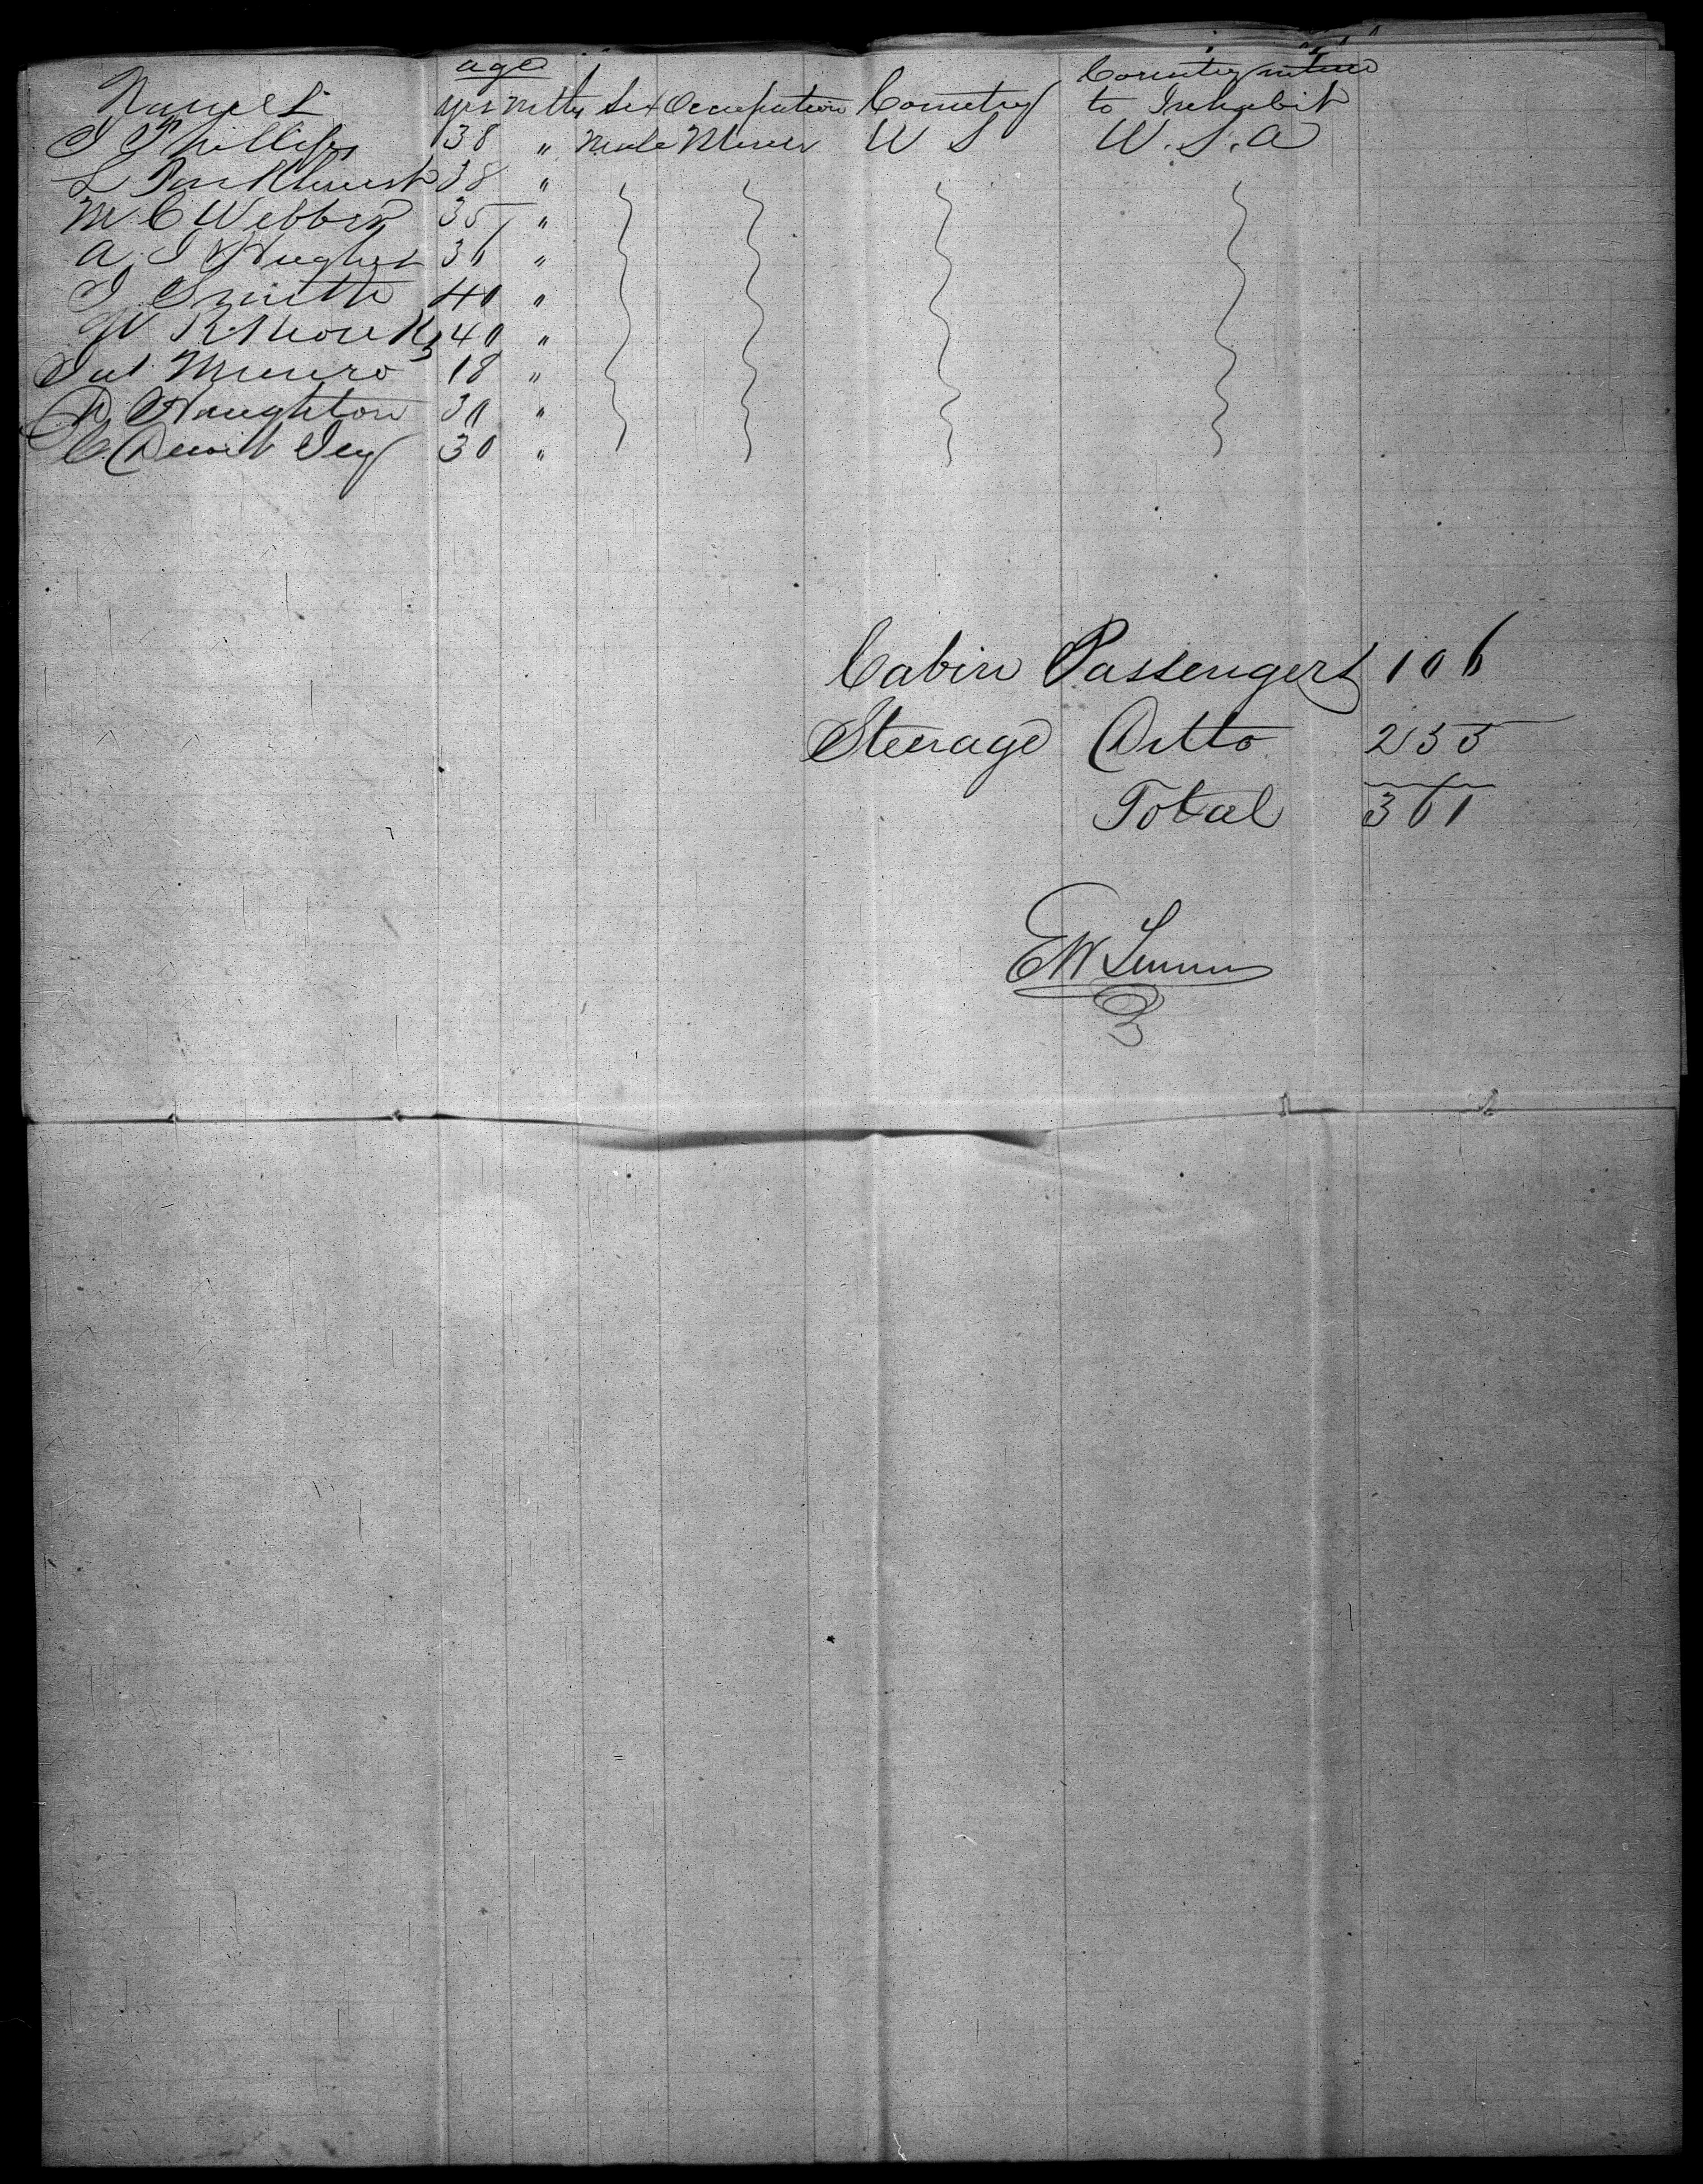 age Country intend
Names yrs mths Sex Occupation Country to Inhabit
J Phillips 38 " Male Miner U S U.S.A
L Parkhurst 38 "
M C Webber 35 "
A J Hughes 36 "
J Smith 40 "
W R 40 "
Munro 18 "
D Haughton 30 "
C Dewit Ivy 30 "
Cabin Passengers 106
Steerage Ditto 255
Total 361
E W